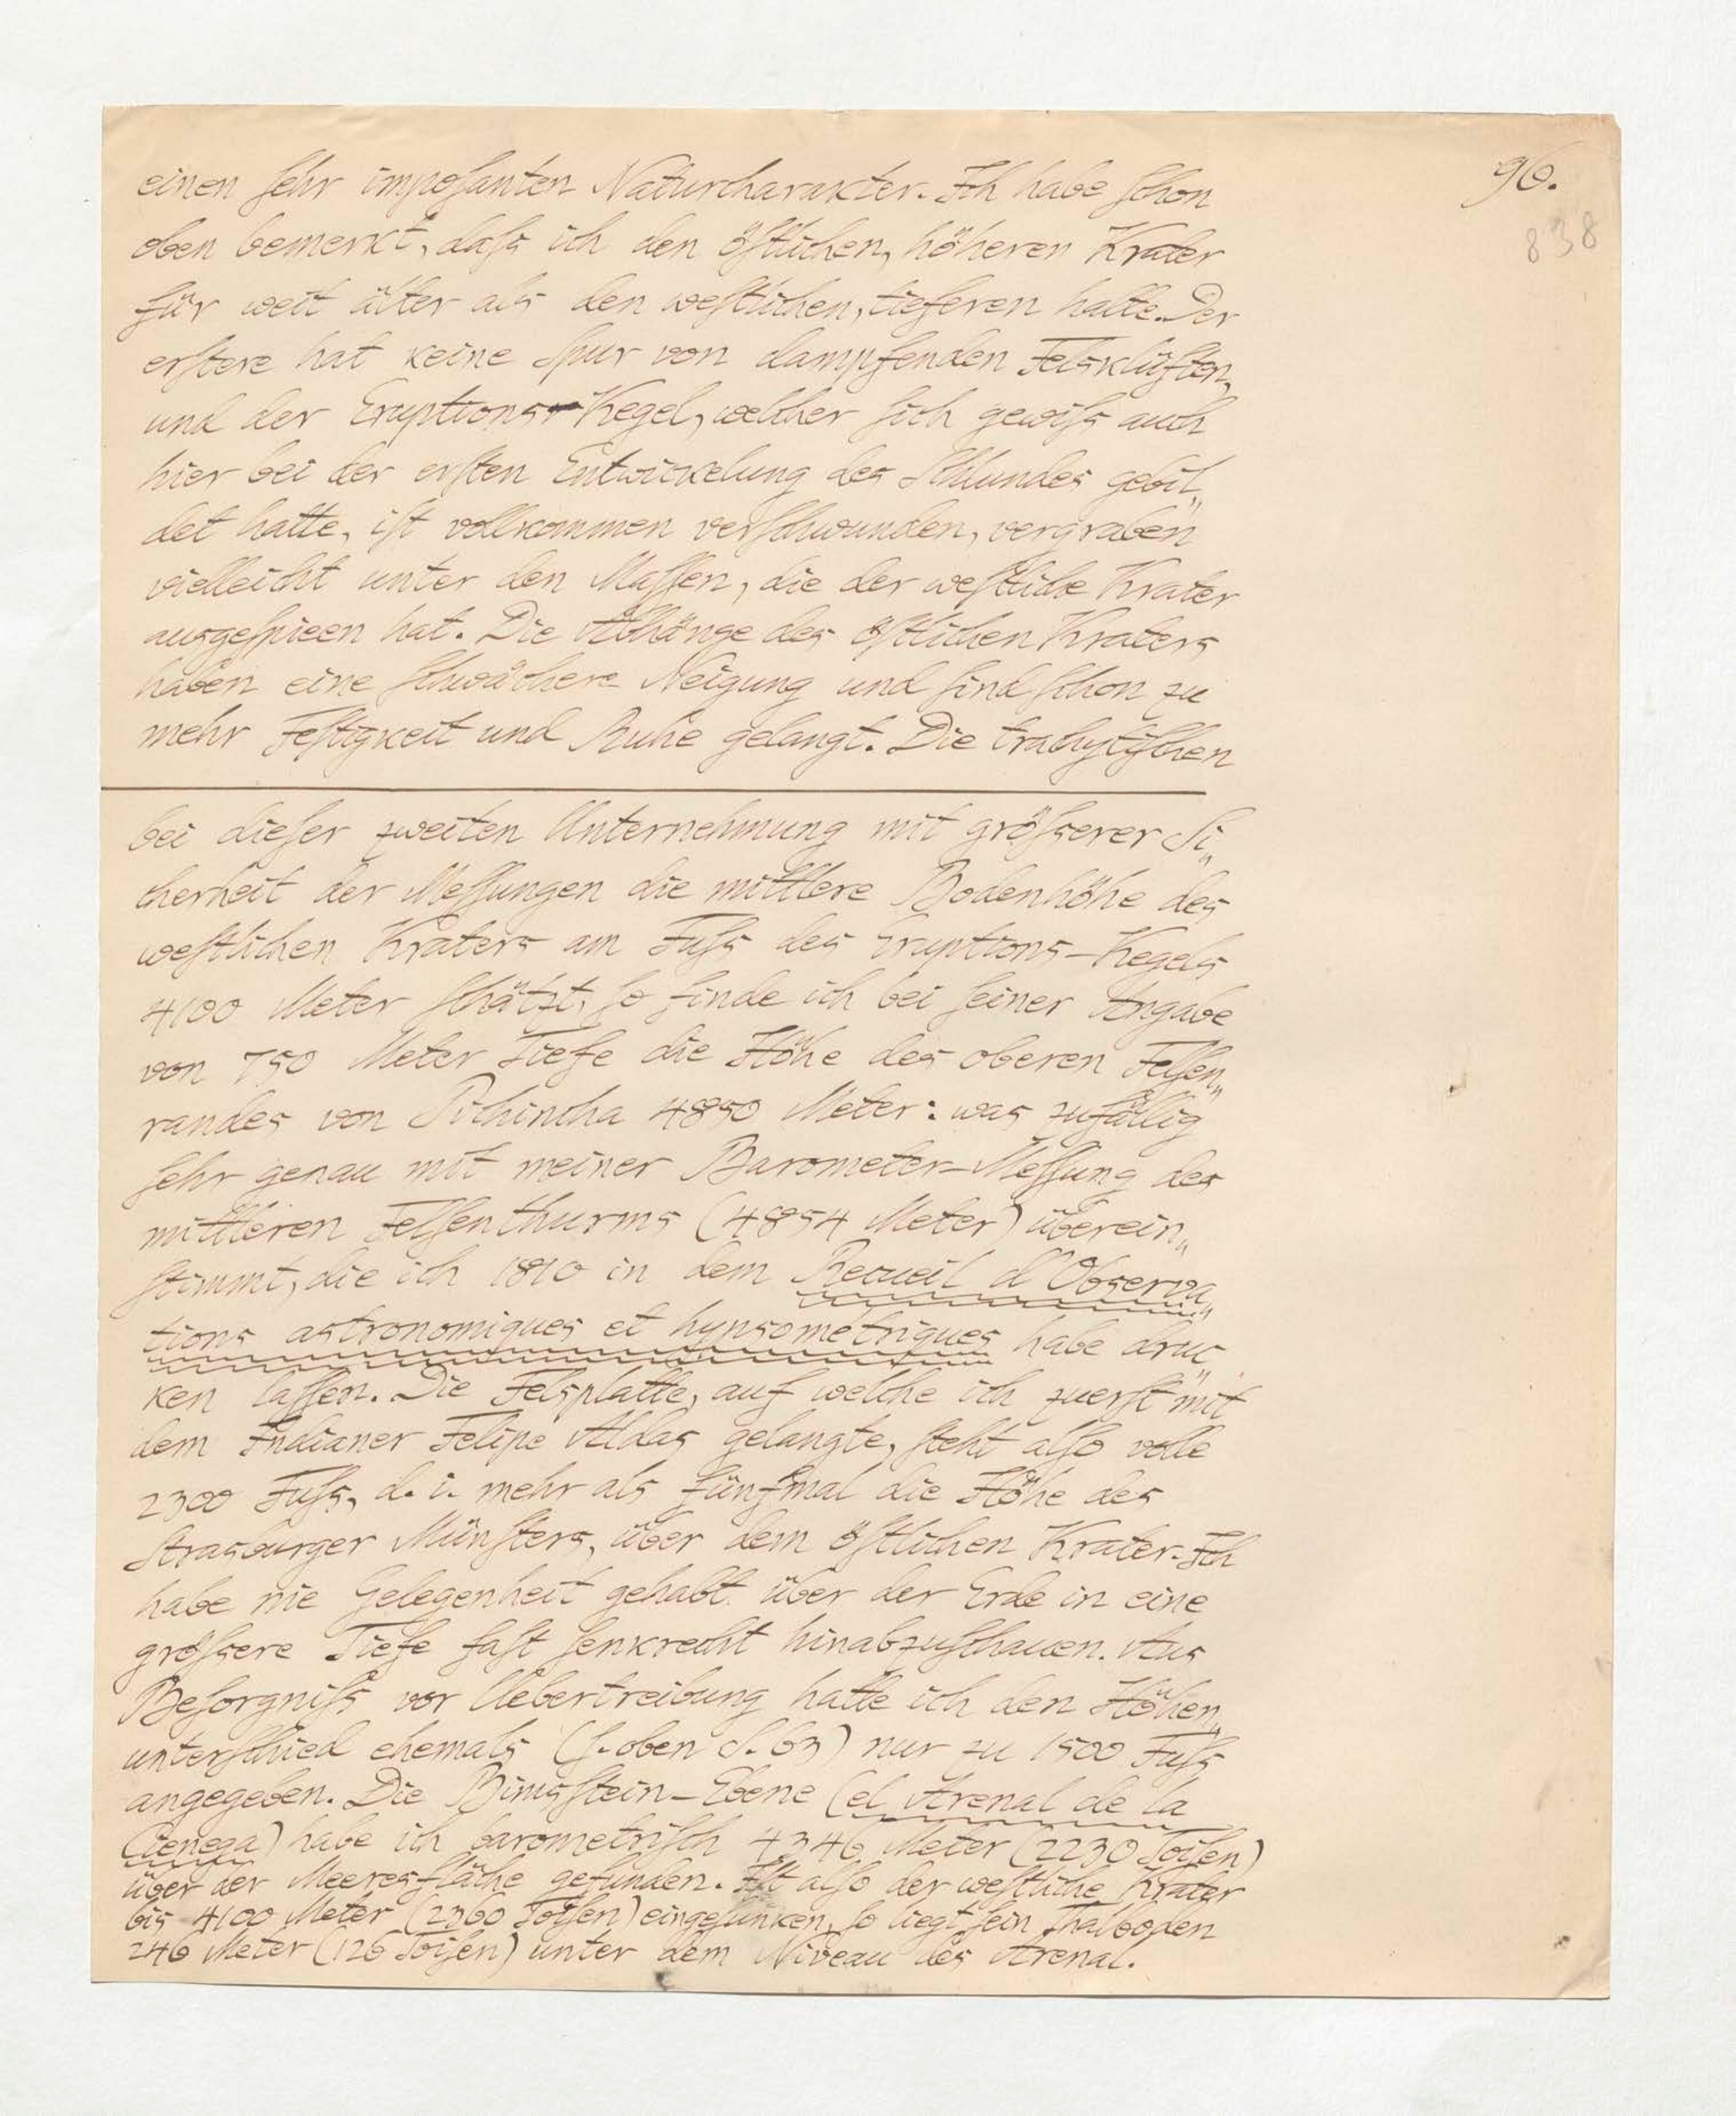 96.
838
einen ſehr impoſanten Naturcharakter. Ich habe ſchon
oben bemerkt, daſs ich den öſtlichen, höheren Krater
für weit älter als den weſtlichen, tieferen halte. Der
erſtere hat keine Spur von dampfenden Felsklüften,
und der Eruptions-Kegel, welcher ſich gewiſs auch
hier bei der erſten Entwickelung des Schlundes gebil„
det hatte, iſt vollkommen verſchwunden, vergraben
vielleicht unter den Maſſen, die der weſtliche Krater
ausgeſpieen hat. Die Abhänge des öſtlichen Kraters
haben eine ſchwächere Neigung und ſind ſchon zu
mehr Feſtigkeit und Ruhe gelangt. Die trachytiſchen
bei dieſer zweiten Unternehmung mit gröſserer Si„
cherheit der Meſſungen die mittlere Bodenhöhe des
weſtlichen Kraters am Fuſs des Eruptions-Kegels
4100 Meter ſchätzt, ſo finde ich bei ſeiner Angabe
von 750 Meter Tiefe die Höhe des oberen Felſen„
randes von Pichincha 4850 Meter: was zufällig
ſehr genau mit meiner Barometer-Meſſung des
mittleren Felſenthurms (4854 Meter) überein„
ſtimmt, die ich 1810 in dem Recueil d'Observa„
tions astronomiques et hypsometriques habe druc„
ken laſſen. Die Felsplatte, auf welche ich zuerſt mit
dem Indianer Felipe Aldas gelangte, ſteht alſo volle
2300 Fuſs, d. i. mehr als fünfmal die Höhe des
Strasburger Münſters, über dem öſtlichen Krater. Ich
habe nie Gelegenheit gehabt über der Erde in eine
gröſsere Tiefe faſt ſenkrecht hinabzuſchauen. Aus
Beſorgniſs vor Uebertreibung hatte ich den Höhen„
unterſchied ehemals (ſ. oben S. 63) nur zu 1500 Fuſs
angegeben. Die Bimsſtein-Ebene (el Arenal de la
Cienega) habe ich barometriſch 4346 Meter (2230 Toiſen)
über der Meeresfläche gefunden. Iſt alſo der weſtliche Krater
bis 4100 Meter (2360 Toiſen) eingeſunken, ſo liegt ſein Thalboden
246 Meter (126 Toiſen) unter dem Niveau des Arenal.